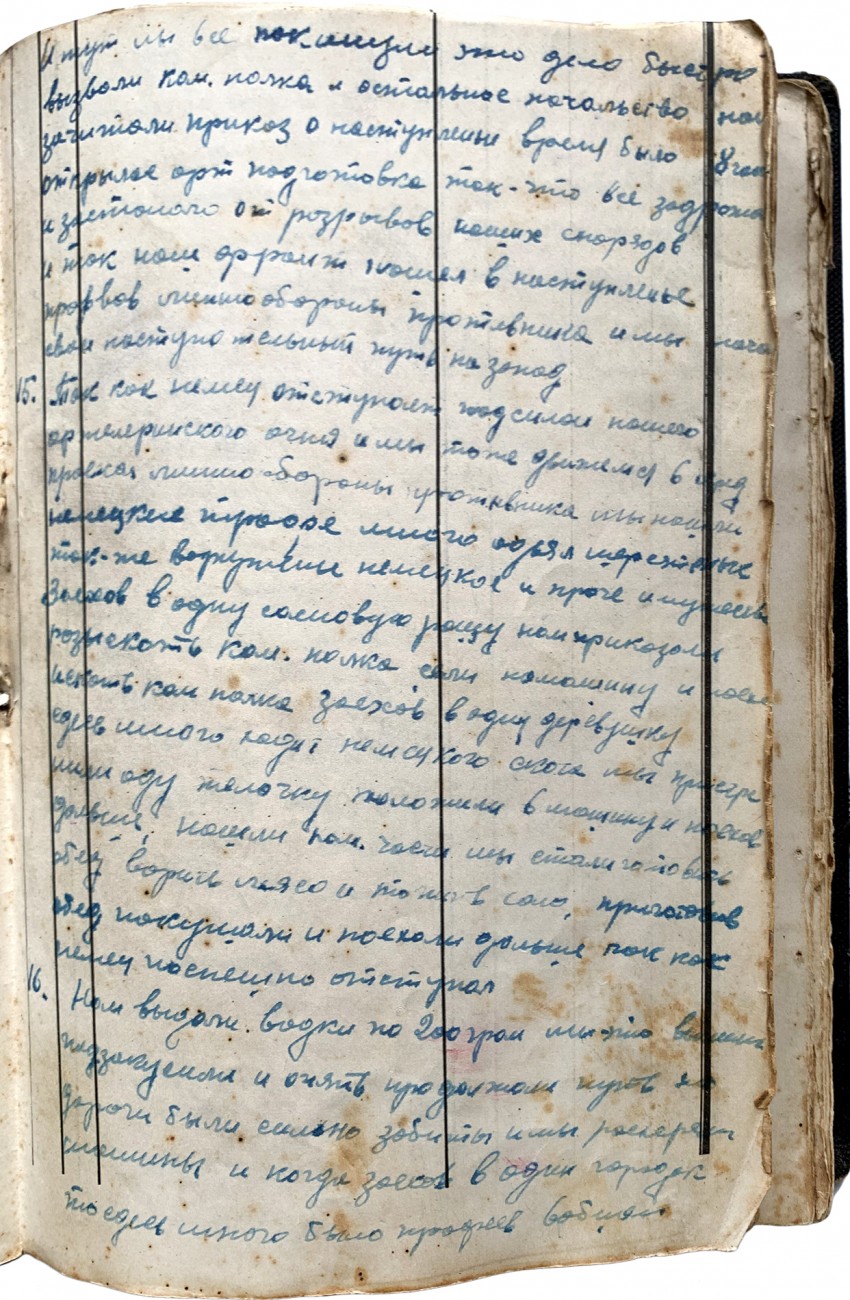 И тут мы все это дело быстро
вызвали ком. полка и остальное начальство нам
зачитали приказ о наступление время было
открылас арт подготовка так-что все задрожа
и застонало от розрывов наших снарядов
и так наш фронт пошел в наступленье
прорвов линию обороны противника и мы нача
свой наступательный путь на запад
15. Так как немец отступает под силой нашего
артилерийского огня и мы тоже движемся
проехав линию обороны противника мы нашли
немецкие много одеял шерстяные
так-же воружение немецкое и проче имущесв
Заехов в одну сосновую рощу нам приказали
розыскать ком. полка сели на машину и поех
искать ком полка заехов в одну деревушку
сдесь много ходит немецкого скота мы пристре
лили оду телочку положили в машину и поехов
дальше, нашли ком. части мы стали готовить
обед варить мясо и топить сало, приготовив
обед покушали и поехали дальше так как
немец поспешно отступал
16. Нам выдали водки по 200 грам мы это выпили
подзакусили и опять продолжали путь но
дороги были сильно забиты и мы
машины и когда заехов в один городок
то сдесь много было трофеев